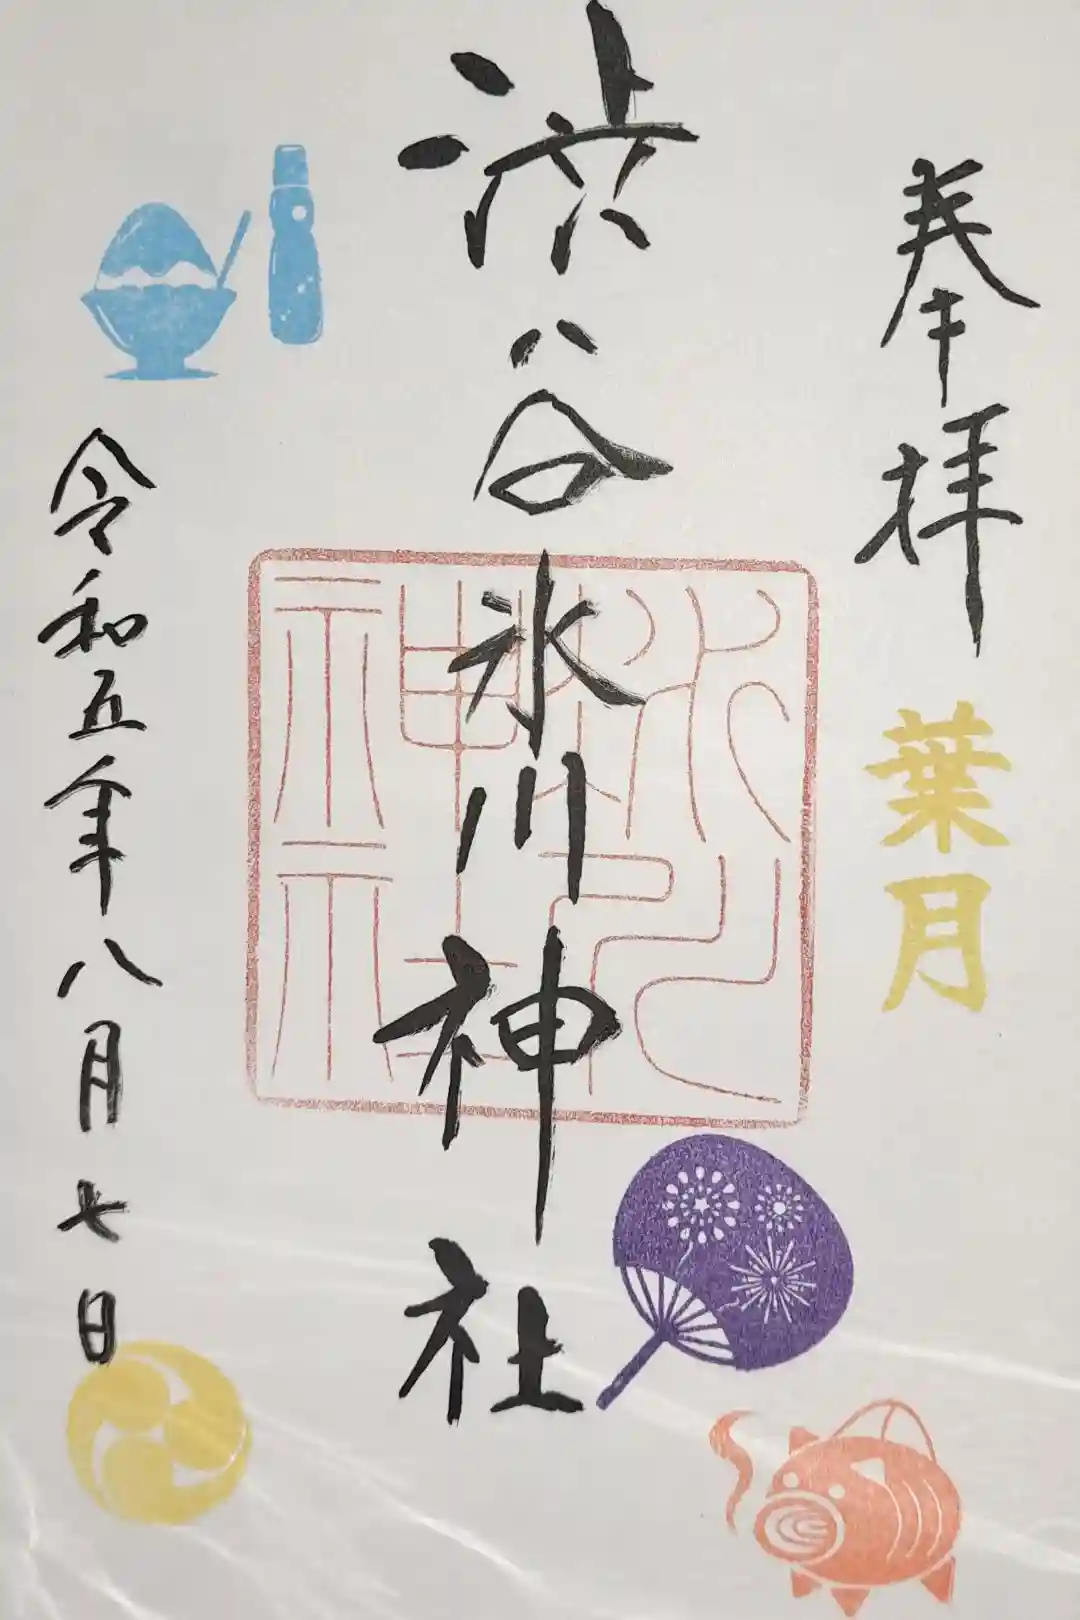 奉拝
葉月
渋谷氷川神社
令和五年八月七日